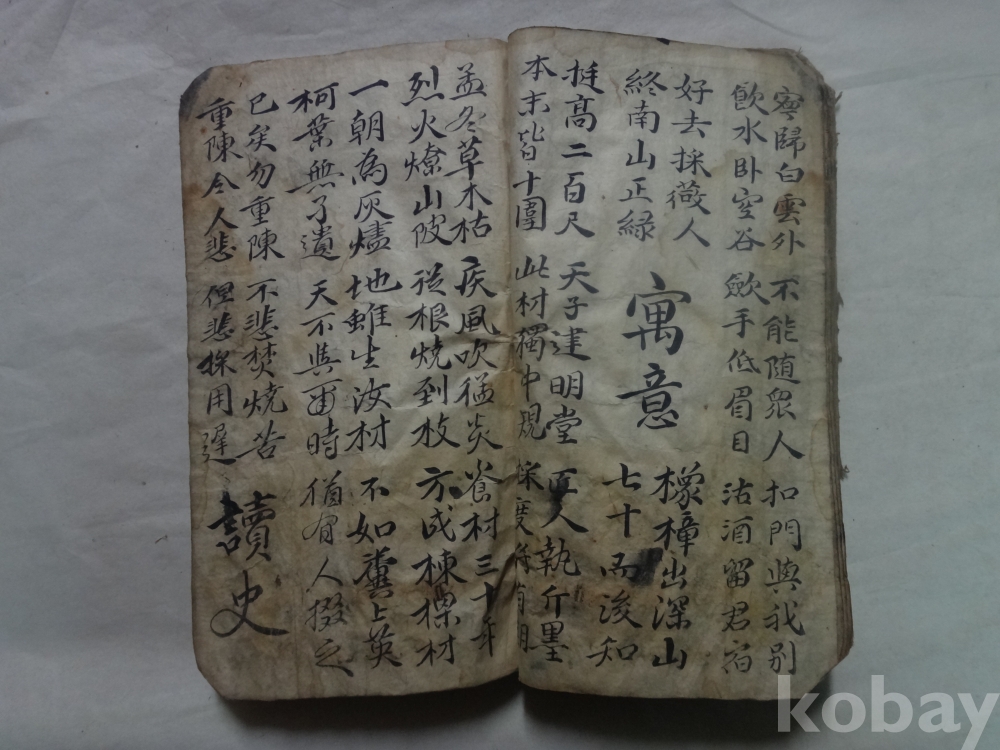 寧歸白雲外 不能隨眾人 扣門與我別
飮水卧空谷 歛手低眉目 沽酒留君宿
好去採薇人
終南山正綠
寓意
橡樟出深山
七十而浚知
挺高二百尺 天子建明堂 匠人執斤墨
本末皆十圍 此材獨中規 採度將有期
孟冬草木枯 疾風吹猛炎 養材三十年
烈火燎山陂 從根燒到枝 方成棟樑材
一朝為灰燼 地雖生汝材 不如糞上英
柯葉無孑遺 天不與甭時 猶有人掇之
已矣勿重陳 不悲焚燒苦
重陳令人悲 但悲採用遲
讀史
kobay